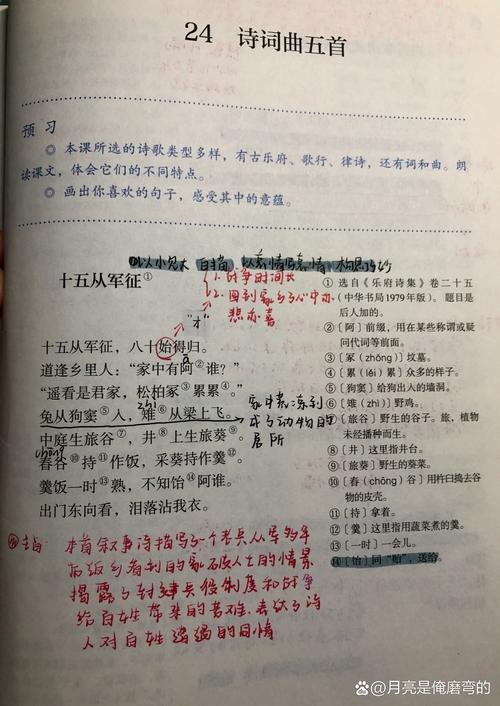 24 诗词曲五首
预习
◎ 本课所选的诗歌类型多样，有古乐府、歌行、律诗，还有词和曲。朗
读课文，体会它们的不同特点。
◎ 画出你喜欢的句子，感受其中的意蕴。
以小见大 白描 以哀情写哀情 构思巧妙
十五从军征①
1. 战争时间长
2. 回到家乡了心中亦
悲亦喜
"才"
十五从军征，八十始得归。
道逢乡里人："家中有阿②谁？"
"遥看是君家，松柏冢③累累④。"
兔从狗窦⑤入，雉⑥从梁上飞。
zhì
家中荒凉到
成了动物的
居所
中庭生旅谷⑦，井⑧上生旅葵⑨。
chōng
舂谷⑩持⑪作饭，采葵持作羹⑫。
羹饭一时⑬熟，不知饴⑭阿谁。
出门东向看，泪落沾我衣。
① 选自《乐府诗集》卷二十五
（中华书局1979年版）。题目是
后人加的。
②〔阿〕前缀，用在某些称谓或疑
问代词等前面。
③〔冢（zhǒng）〕坟墓。
④〔累（léi）累〕众多的样子。
⑤〔狗窦〕给狗出入的墙洞。
⑥〔雉（zhì）〕野鸡。
⑦〔旅谷〕野生的谷子。旅，植物
未经播种而生。
⑧〔井〕这里指井台。
⑨〔旅葵〕野生的葵菜。
⑩〔舂（chōng）谷〕用杵臼捣去谷
物的皮壳。
⑪〔持〕拿着。
⑫〔羹〕这里指用蔬菜煮的羹。
⑬〔一时〕一会儿。
⑭〔饴〕同"贻"，送给。
主旨
本首叙事诗描写了一个老兵从军多年
后返乡看到的家破人亡的情景
揭露了封建兵役制度和战争
给百姓带来的苦难，表达了诗
人对百姓遭遇的同情
@月亮是俺磨弯的